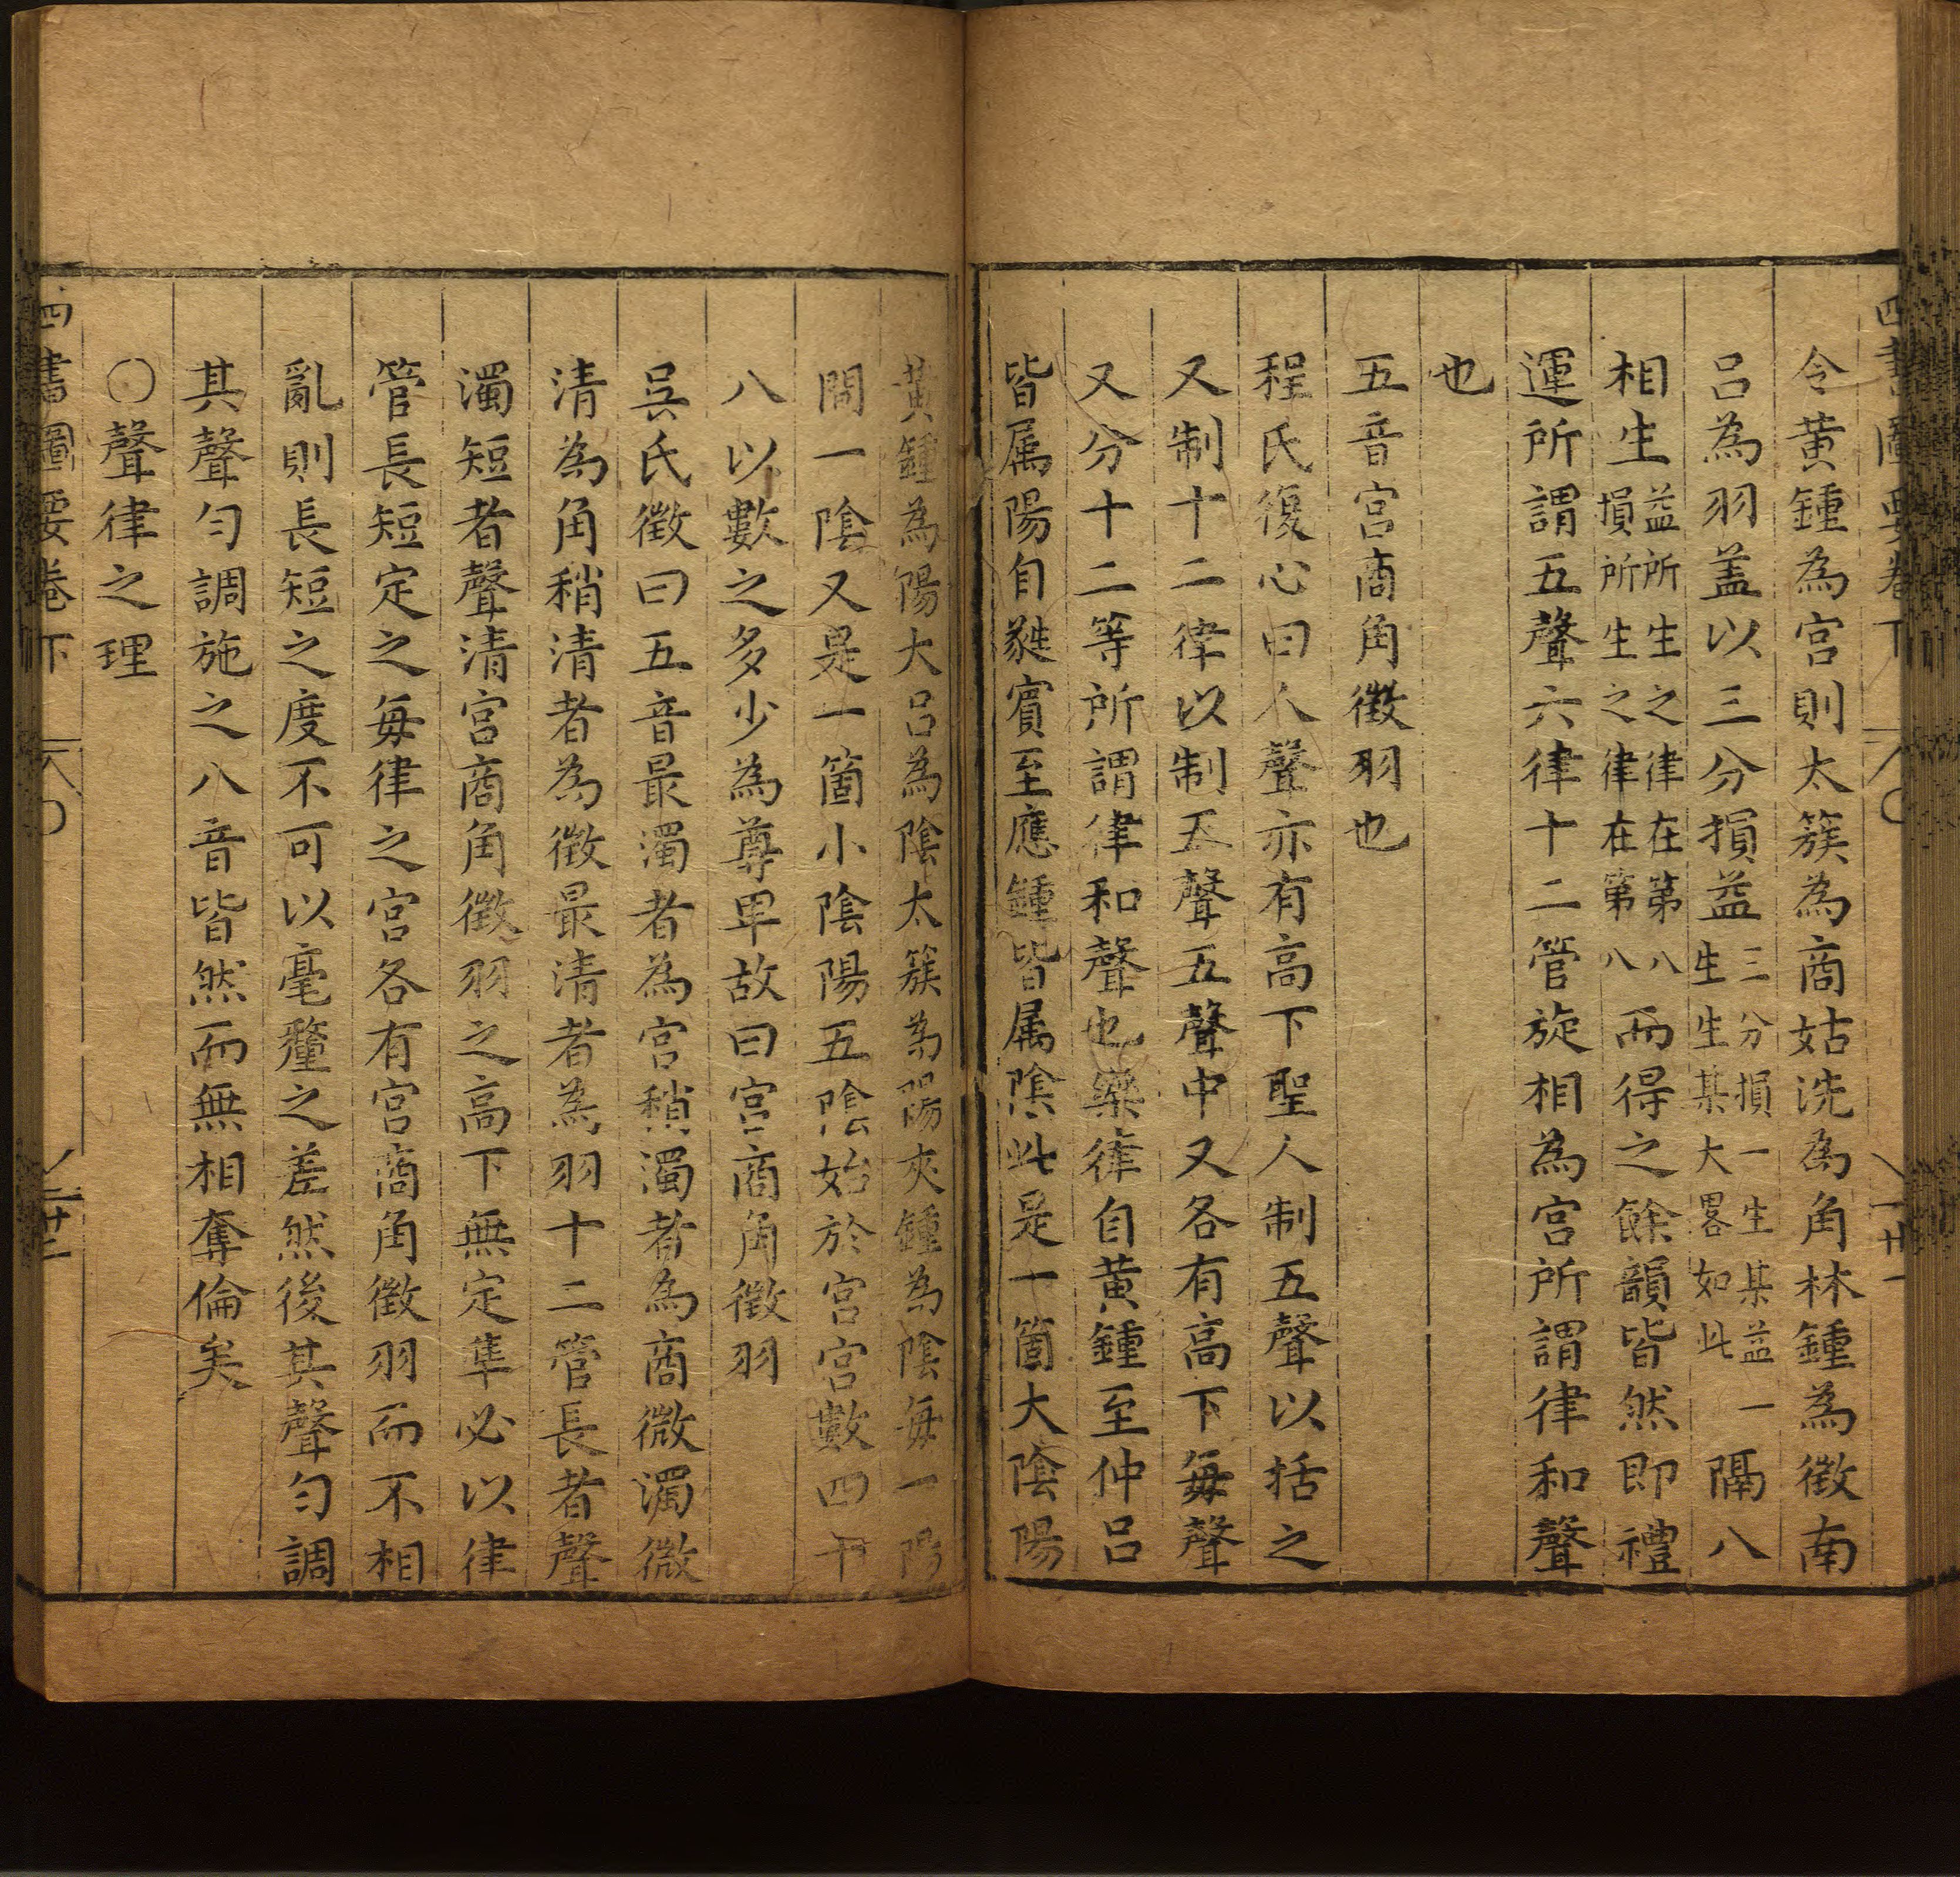 令黄鍾為宮則太簇為商姑洗為角林鍾為徵南
呂為羽盖以三分損益三分損一生某益一生生某大畧如此隔八
相生益所生之律在第八損所生之律在第八而得之餘韻皆然即禮
運所謂五聲六律十二管旋相為宮所謂律和聲
也
五音宮商角徵羽也
程氏復心曰人聲亦有高下聖人制五聲以括之
又制十二律以制五聲五聲中又各有高下每聲
又分十二等所謂律和聲也樂律自黄鍾至仲呂
皆属陽自蕤賓至應鍾皆属陰此是一箇大陰陽
黄鍾為陽大呂為陰太簇為陽夾鍾為陰每一陽
間一陰又是一箇小陰陽五陰始於宮宮數四十
八以數之多少為尊卑故曰宮商角徵羽
吳氏徵曰五音最濁者為宮稍濁者為商微濁微
清為角稍清者為徵最清者為羽十二管長者聲
濁短者聲清宮商角徵羽之高下無定準必以律
管長短定之每律之宮各有宮商角徵羽而不相
亂則長短之度不可以毫釐之差然後其聲勻調
其聲勻調施之八音皆然而無相奪倫矣
○聲律之理
四書圖要卷下